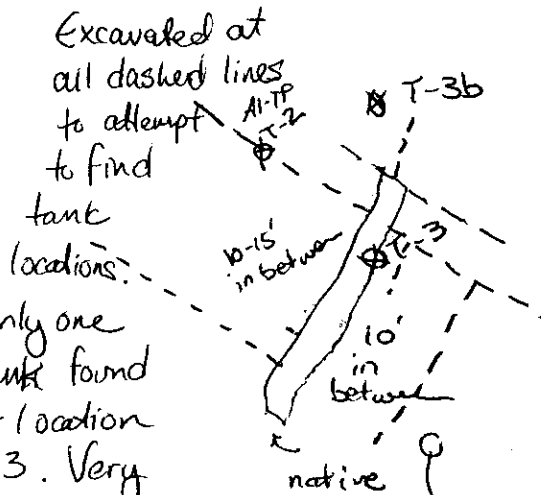 Excavated at
all dashed lines
to attempt
to find
tank
locations.
nly one
unk found
location
3. Very
A1-TP
T-2
T-3b
T-3
10-15'
in between
10'
in
between
native